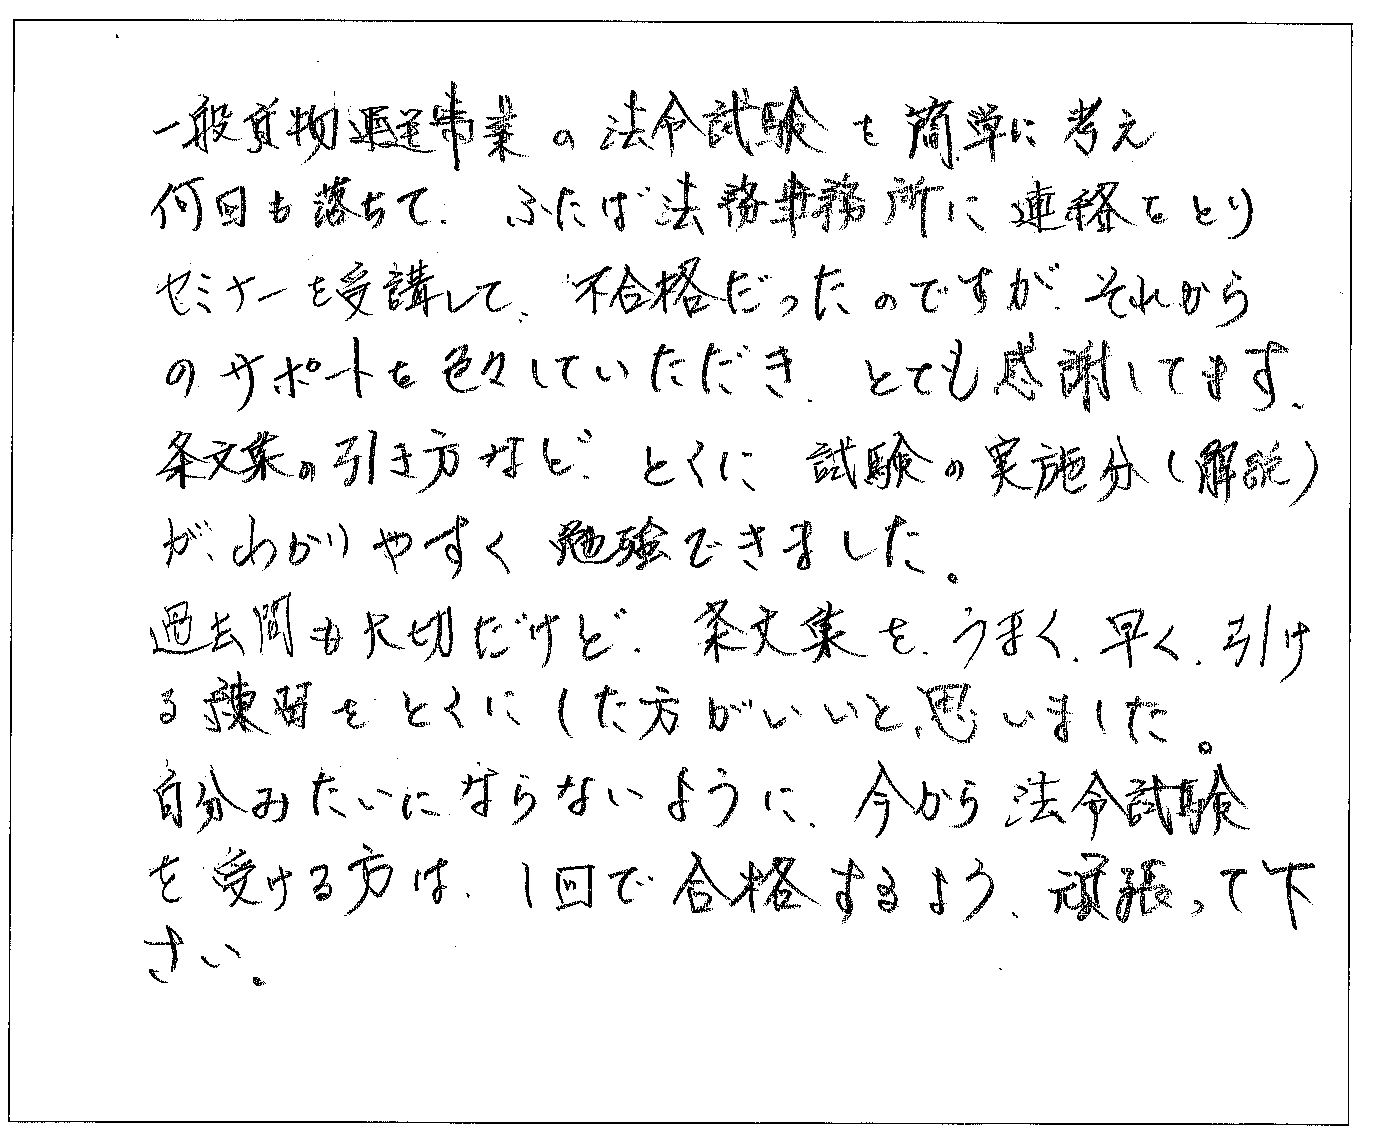 一般貨物運送事業の法令試験を簡単に考え
何回も落ちて、ふたば法務事務所に連絡をとり
セミナーを受講して、不合格だったのですが、それから
のサポートを色々していただき、とても感謝してます、
条文集の引き方など、とくに試験の実施分(解説)
が、わかりやすく勉強できました。
過去問も大切だけど、条文集を、うまく、早く、引け
る練習をとくにした方がいいと、思いました。
自分みたいにならないように、今から法令試験
を受ける方は、1回で合格するよう、頑張って下
さい。